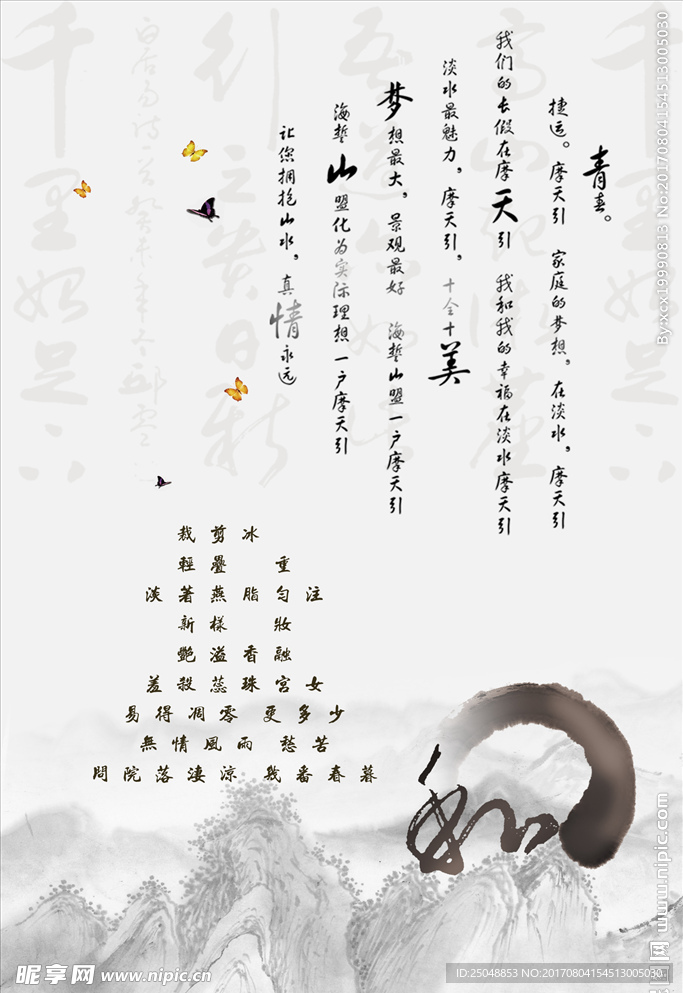 青春。
捷运。摩天引 家庭的梦想,在淡水,摩天引
我们的长假在摩天引 我和我的幸福在淡水摩天引
淡水最魅力,摩天引,十全十美
梦想最大,景观最好 海誓山盟一户摩天引
海誓山盟化为实际理想一户摩天引
让您拥抱山水,真情永远
裁剪冰
輕疊 重
淡著燕脂匀注
新樣 妝
艷溢香融
羞殺蕊珠宮女
易得凋零 更多少
無情風雨 愁苦
問院落淒涼 幾番春暮
和
昵享网 www.nipic.cn
ID:25048853 NO:20170804154513005030
By:xcx19990813 No:20170804154513005030
www.nipic.com